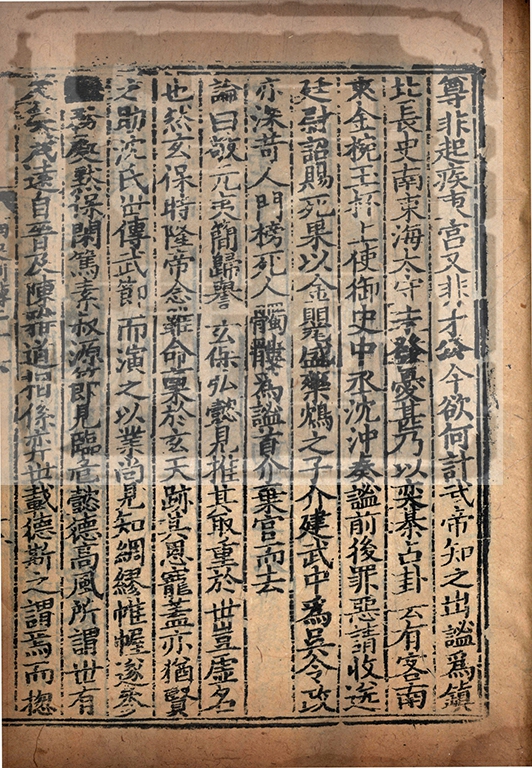 尊非起疾東宮又非才公今欲何計武帝知之出謐爲鎮
北長史南東海太守未發憂甚乃以弈棊占卦云有客南
來金椀玉杯上使御史中丞沈沖奏謐前後罪惡請收送
廷尉詔賜死果以金罌盛藥鴆之子介建武中爲吳令政
亦深苛人門榜死人髑髏爲謐首介棄官而去
論曰敬元夷簡歸譽玄保弘懿見推其取重於世豈虛名
也然玄保時隆帝念雖命稟於玄天跡其恩寵蓋亦猶賢
之助沈氏世傳武節而演之以業尚見知綢繆帷幄遂參
務處默保閑篤素叔源節見臨危懿德高風所謂世有
人矣茂遠自晉及陳雅道相係弈世載德斯之謂焉而摠